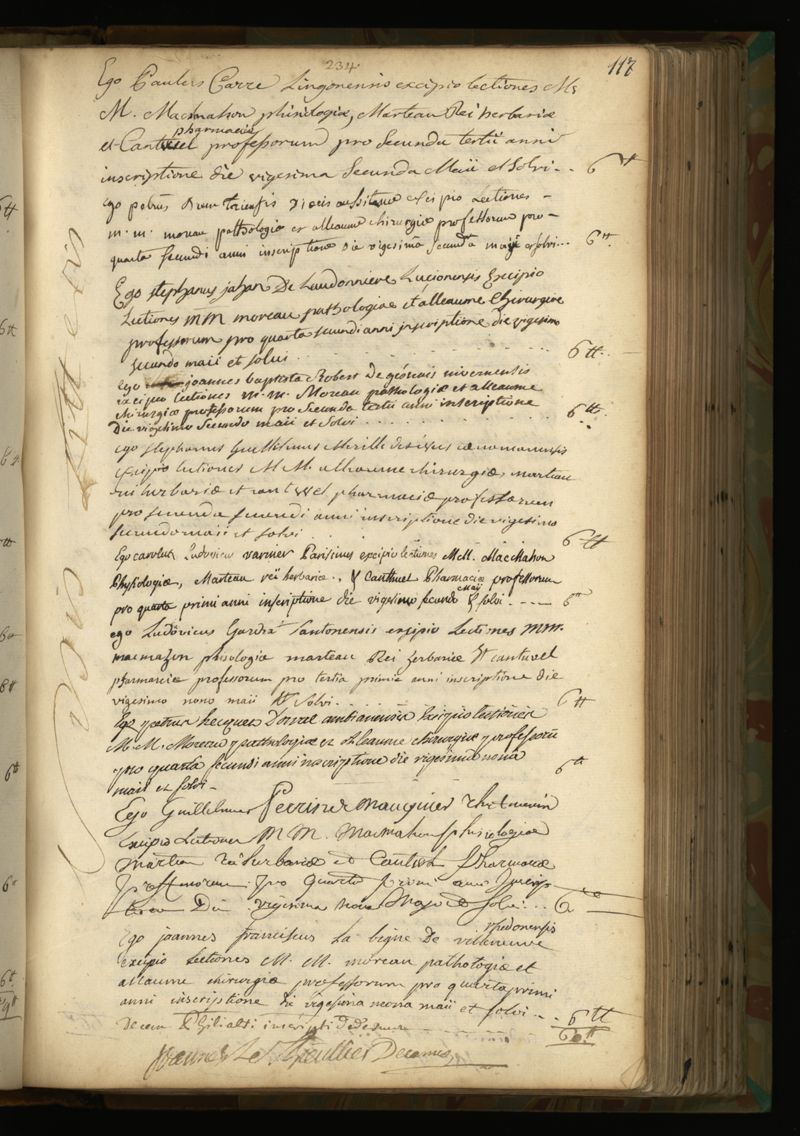 234
117
Ego Paulus Carre Lingonensis excipio lectiones M.
M. Macmahon phisilogiæ, Marteau Rei herbariæ
pharmaciæ
et Cantwel professorum pro secunda tertii anni
inscriptione die vigesima secunda Maii et solvi.. 6tt
Ego petrus excipio Lectiones
m. m. moreau pathologiæ et alleaume chirurgiæ professorum pro
quarta secundi anni inscriptione die vigesima secunda maii et solvi... 6tt
Ego stephanus jahan De Laudonniere Lucionensis Excipio
Lectiones MM moreau pathologiæ et alleaume Chirurgiæ
professorum pro quarta secundi anni inscriptione die vigesimo
secundo maii et solui . 6tt
ego joannes baptista Robert De nivernensis
excipio lectiones m. m. Moreau pathologiæ et alleaume
chirurgiæ professorum pro secunda tertii anni inscriptione
Die vigesimo secundo maii et solvi . . . 6tt
ego stephanus Guillelmus cænomanensis
excipio lectiones M M. alleaume chirurgiæ, marteau
rei herbariæ et cantwel pharmaciæ professorum
pro secunda secundi anni inscriptione die vigesimo
secundo maii et solvi . . . 6tt
Ego carolus Ludovicus varnier Parisinus excipio lectiones MM. MacMahon
Physiologiæ, Marteau reï herbariæ., & Canthuel Pharmaciæ professorum
maij
pro quarta primi anni inscriptione die vigesimo secundo & solvi . --- 6tt
ego Ludovicus Santonensis excipio Lectiones MM.
macmahon phisologiæ marteau Rei herbariæ et cantuvel
pharmaciæ professorum pro tertia primi anni inscriptione die
vigesimo nono maii et solvi . . . 6tt
Ego petrus jacques ambianensis Excipio lectiones
M. M. Moreau pathologiæ et Alleaume chirurgiæ professorum
pro quarta secundi anni inscriptione die vigesima nona
maii et solvi - 6tt
Ego Guillelmus Perrine mauquier
Excipio Lectiones M M. Macmahon phisiologiæ
marteau rei herbariæ et Cantwel Pharmaciæ
Professorum Pro quarta primi anni inscrip
tione Die vigesima nona Maji et solvi... 6
rhedonensis
Ego joannes franciscus La bigne De villeneuve
excipio Lectiones M. M. moreau pathologiæ et
alleaume chirurgiæ professorum pro quarta primi
anni inscriptione die vigesima nona maii et solvi -- 6tt
Decem inscripti 60tt
Le Thieullier Decanus